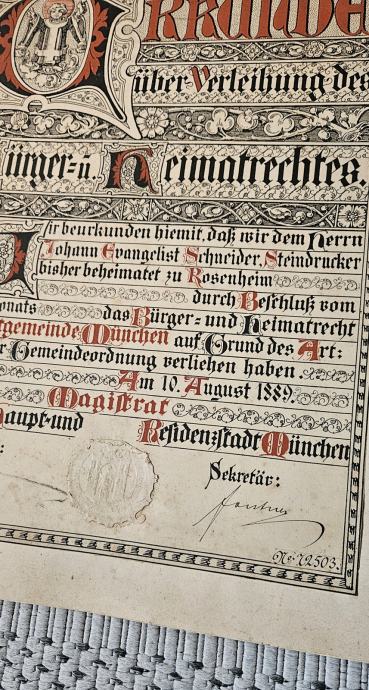 Urkunde
über Verleihung des
ürger= u. Heimatrechtes.
Wir beurkunden hiemit, daß wir dem Herrn
Johann Evangelist Schneider, Steindrucker
bisher beheimatet zu Rosenheim
durch Beschluß vom
onats das Bürger= und Heimatrecht
gemeinde München auf Grund des Art:
r Gemeindeordnung verliehen haben.
Am 10. August 1889.
Magistrat
aupt= und Residenzstadt München
Sekretär:
No: 72503.